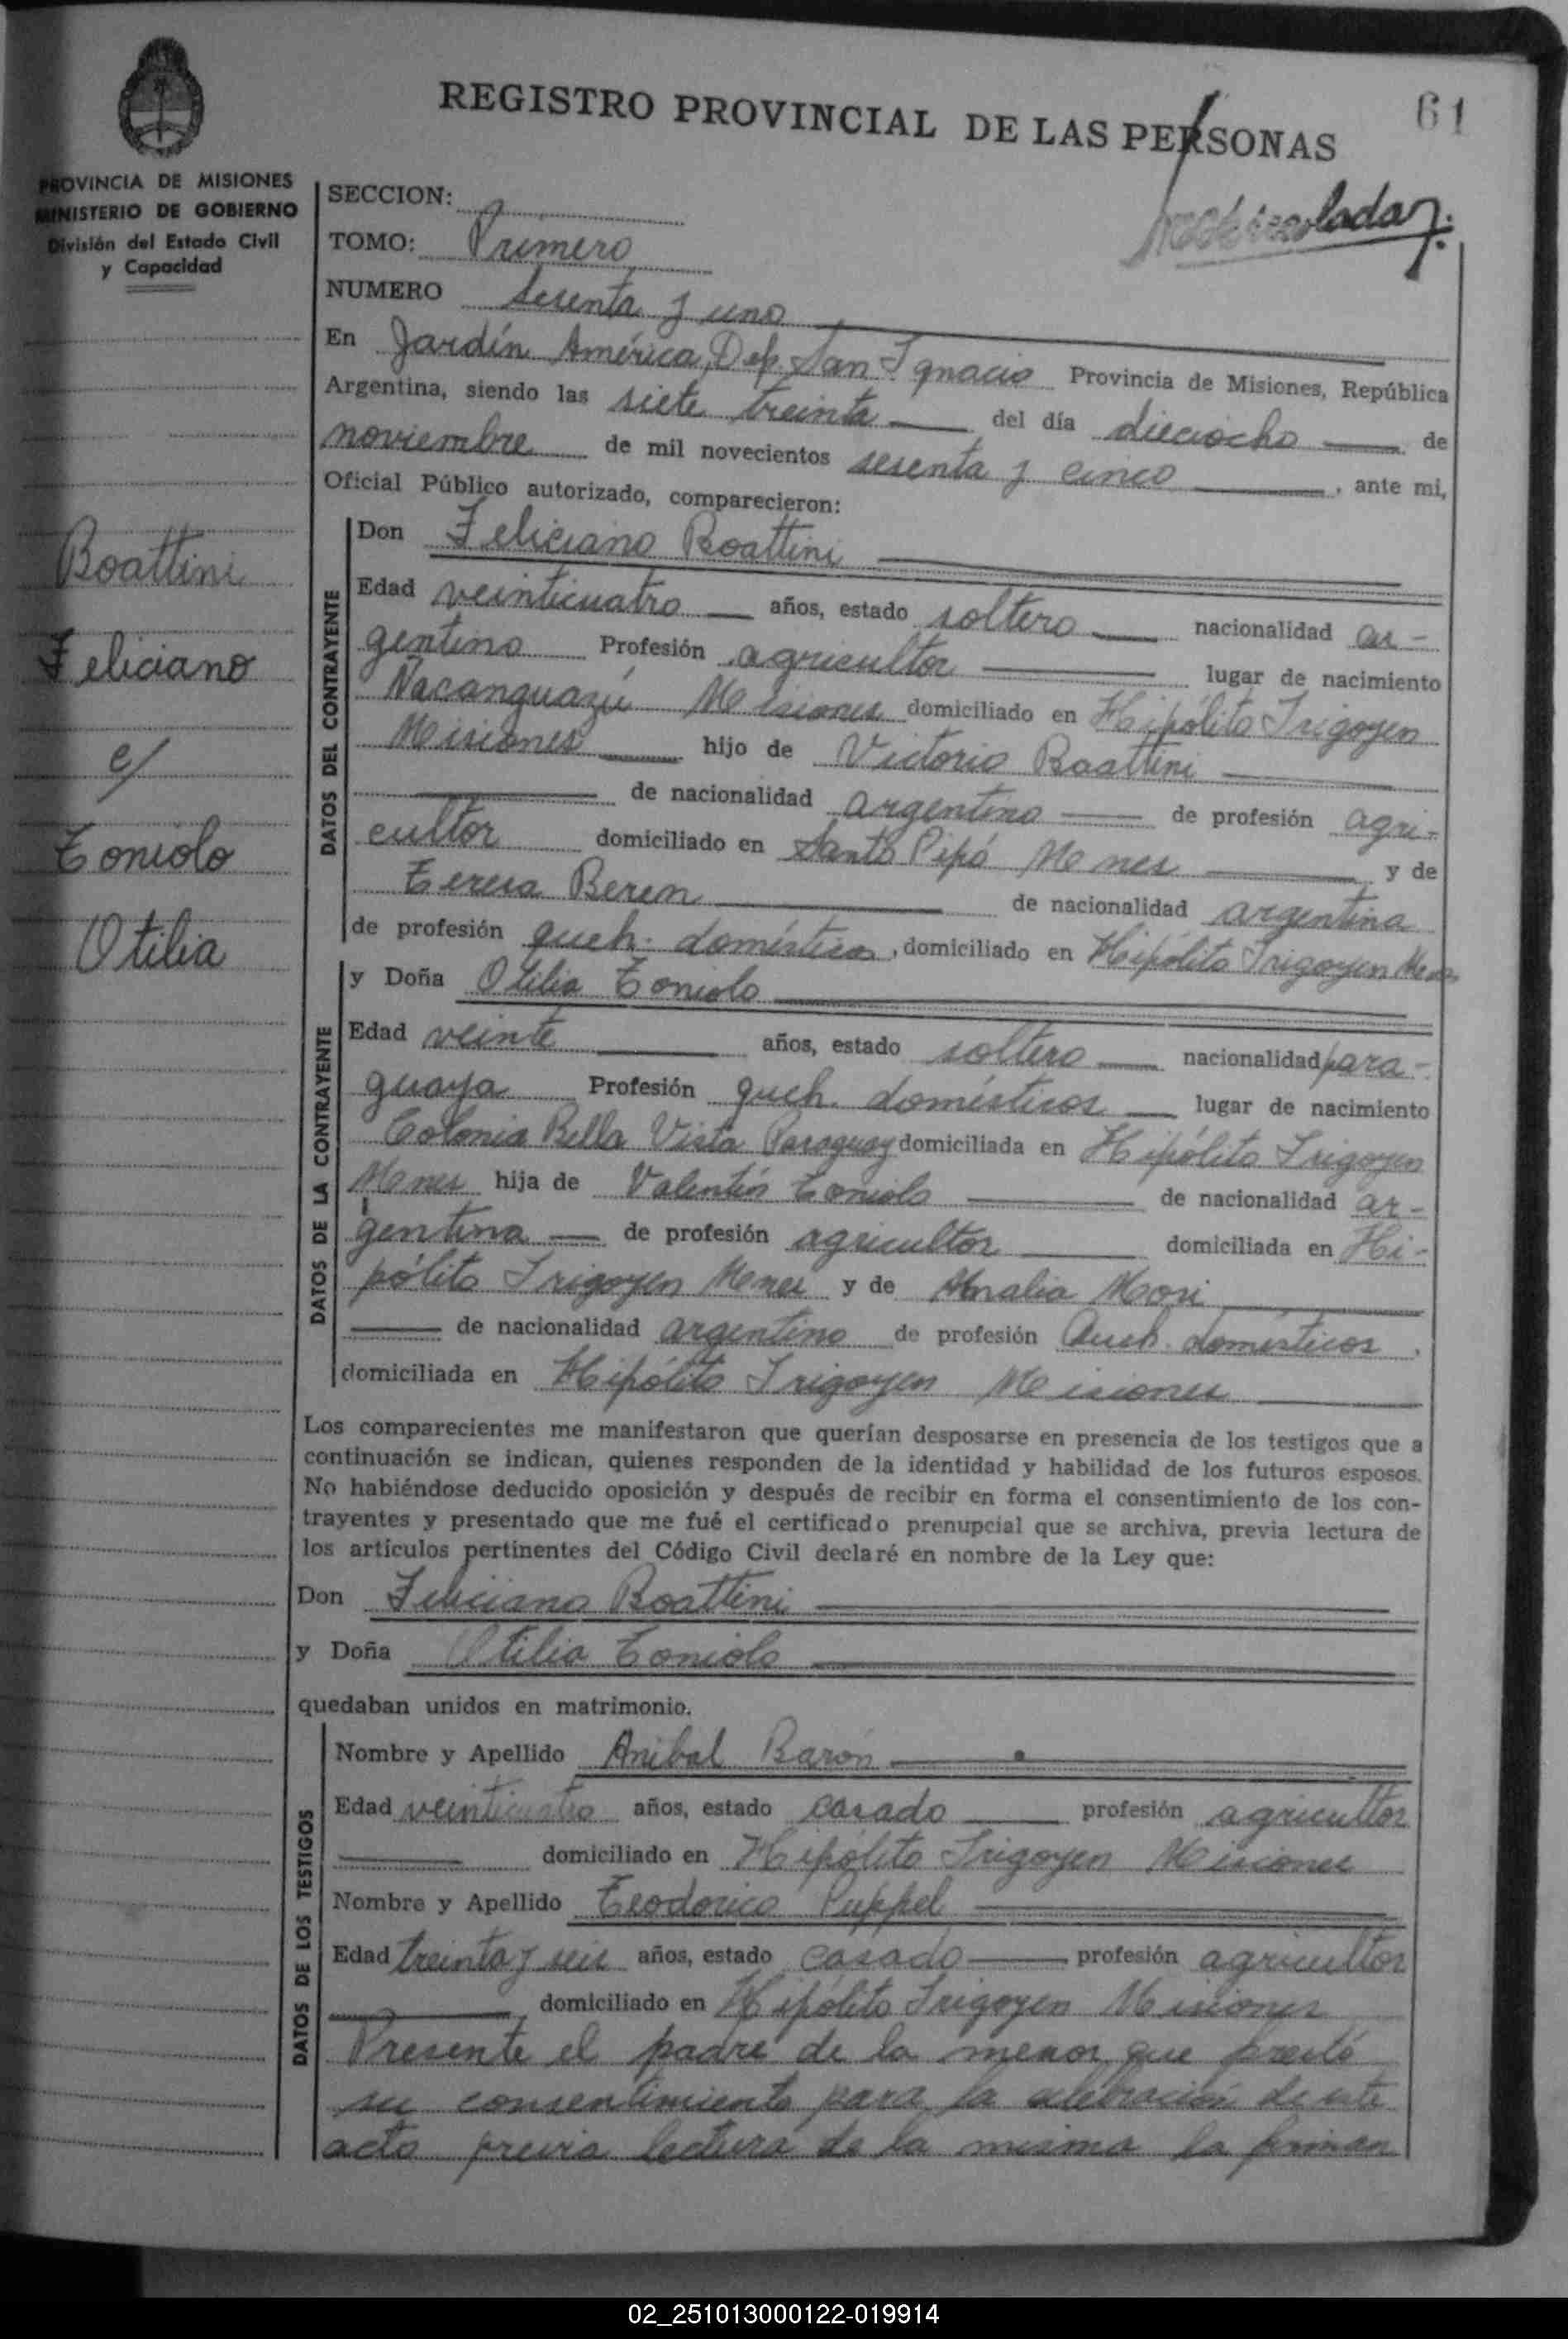 REGISTRO PROVINCIAL DE LAS PERSONAS
61
PROVINCIA DE MISIONES
MINISTERIO DE GOBIERNO
División del Estado Civil
y Capacidad
SECCION:
TOMO: Primero
NUMERO sesenta y uno
En Jardín América, Dep. San Ignacio Provincia de Misiones, República
Argentina, siendo las siete treinta del día dieciocho de
noviembre de mil novecientos sesenta y cinco, ante mi,
Oficial Público autorizado, comparecieron:
Boattini
Feliciano
c/
Toniolo
Otilia
DATOS DEL CONTRAYENTE
Don Feliciano Boattini
Edad veinticuatro años, estado soltero nacionalidad ar-
gentino Profesión agricultor lugar de nacimiento
Ñacanguazú Misiones domiciliado en Hipólito Irigoyen
Misiones hijo de Victorio Boattini
de nacionalidad argentino de profesión agri-
cultor domiciliado en Santo Pipó Mones y de
Teresa Beren de nacionalidad argentina
de profesión queh. domésticos, domiciliado en Hipólito Irigoyen
DATOS DE LA CONTRAYENTE
y Doña Otilia Toniolo
Edad veinte años, estado soltera nacionalidad para-
guaya Profesión queh. domésticos lugar de nacimiento
Colonia Bella Vista Paraguay domiciliada en Hipólito Irigoyen
Mones hija de Valentín Toniolo de nacionalidad ar-
gentina de profesión agricultor domiciliada en Hi-
pólito Irigoyen Mones y de Amalia Mori
de nacionalidad argentina de profesión Queh. domésticos.
domiciliada en Hipólito Irigoyen Misiones
Los comparecientes me manifestaron que querían desposarse en presencia de los testigos que a
continuación se indican, quienes responden de la identidad y habilidad de los futuros esposos.
No habiéndose deducido oposición y después de recibir en forma el consentimiento de los con-
trayentes y presentado que me fué el certificado prenupcial que se archiva, previa lectura de
los artículos pertinentes del Código Civil declaré en nombre de la Ley que:
Don Feliciano Boattini
y Doña Otilia Toniolo
quedaban unidos en matrimonio.
DATOS DE LOS TESTIGOS
Nombre y Apellido Anibal Barón
Edad veinticuatro años, estado casado profesión agricultor
domiciliado en Hipólito Irigoyen Misiones
Nombre y Apellido Teodorico Puppel
Edad treinta y seis años, estado casado profesión agricultor
domiciliado en Hipólito Irigoyen Misiones
Presente el padre de la menor que prestó
su consentimiento para la celebración de este
acto previa lectura de la misma la firman
02_251013000122-019914